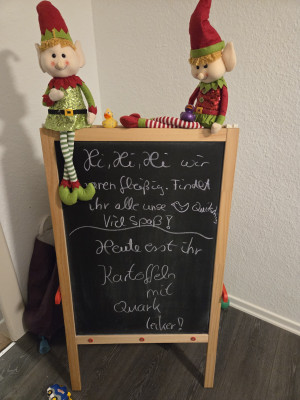 Hi, Hi, Hi wir
waren fleißig. Findet
ihr alle unse Quitschis
Viel Spaß!
Heute esst ihr
Kartoffeln
mit
Quark
lecker!